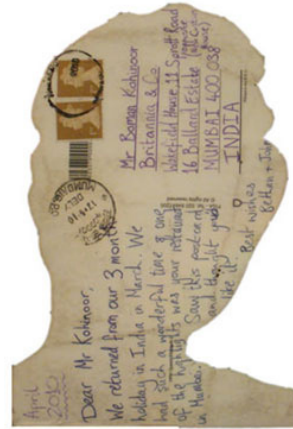 April
2010
Dear Mr Kohinoor,
We returned from our 3 month
holiday in India in March. We
had such a wonderful time & one
of the highlights was your restaurant
in Mumbai. Saw this postcard
and thought you'd
like it.
Best wishes
Bethan &
Mr Boman Kohinoor
Britannia & Co
Wakefield House, 11 Sprott Road
16 Ballard Estate (opposite
MUMBAI 400 038
INDIA